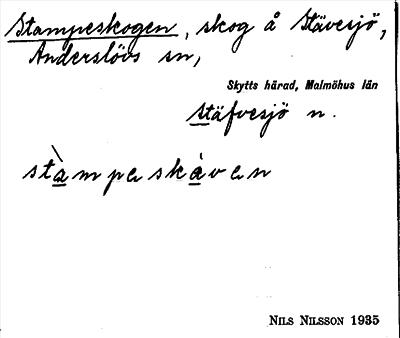 Stampeskogen, skog å Stävesjö,
Anderslövs sn,
Skytts härad, Malmöhus län
Stäfvesjö n.
stàmpeskàven
NILS NILSSON 1935